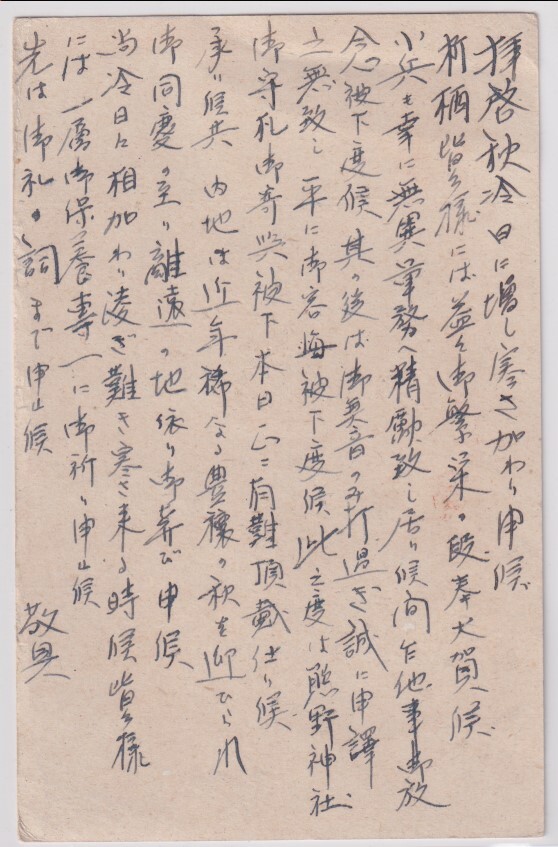 拝啓秋冷日に増し寒さかわり申候
折柄皆々様には益々御繁栄の段奉大賀候
小兵も幸に無異軍務へ精励致し居り候間乍他事御放
念被下度候其の後は御無音のみ打過ぎ誠に申譯
之無致し平に御容海被下度候此之度は熊野神社
御守札御寄與被下本日正に有難頂戴仕り候
承り候共内地は近年稀なる豊穣の秋を迎ひられ
御同慶の至り離遠の地依り御喜び申候
尚冷日に相加わり凌ぎ難き寒さ来る時候皆々様
には一層御保養専一に御祈り申上候
先は御礼の詞まで申上候
敬具